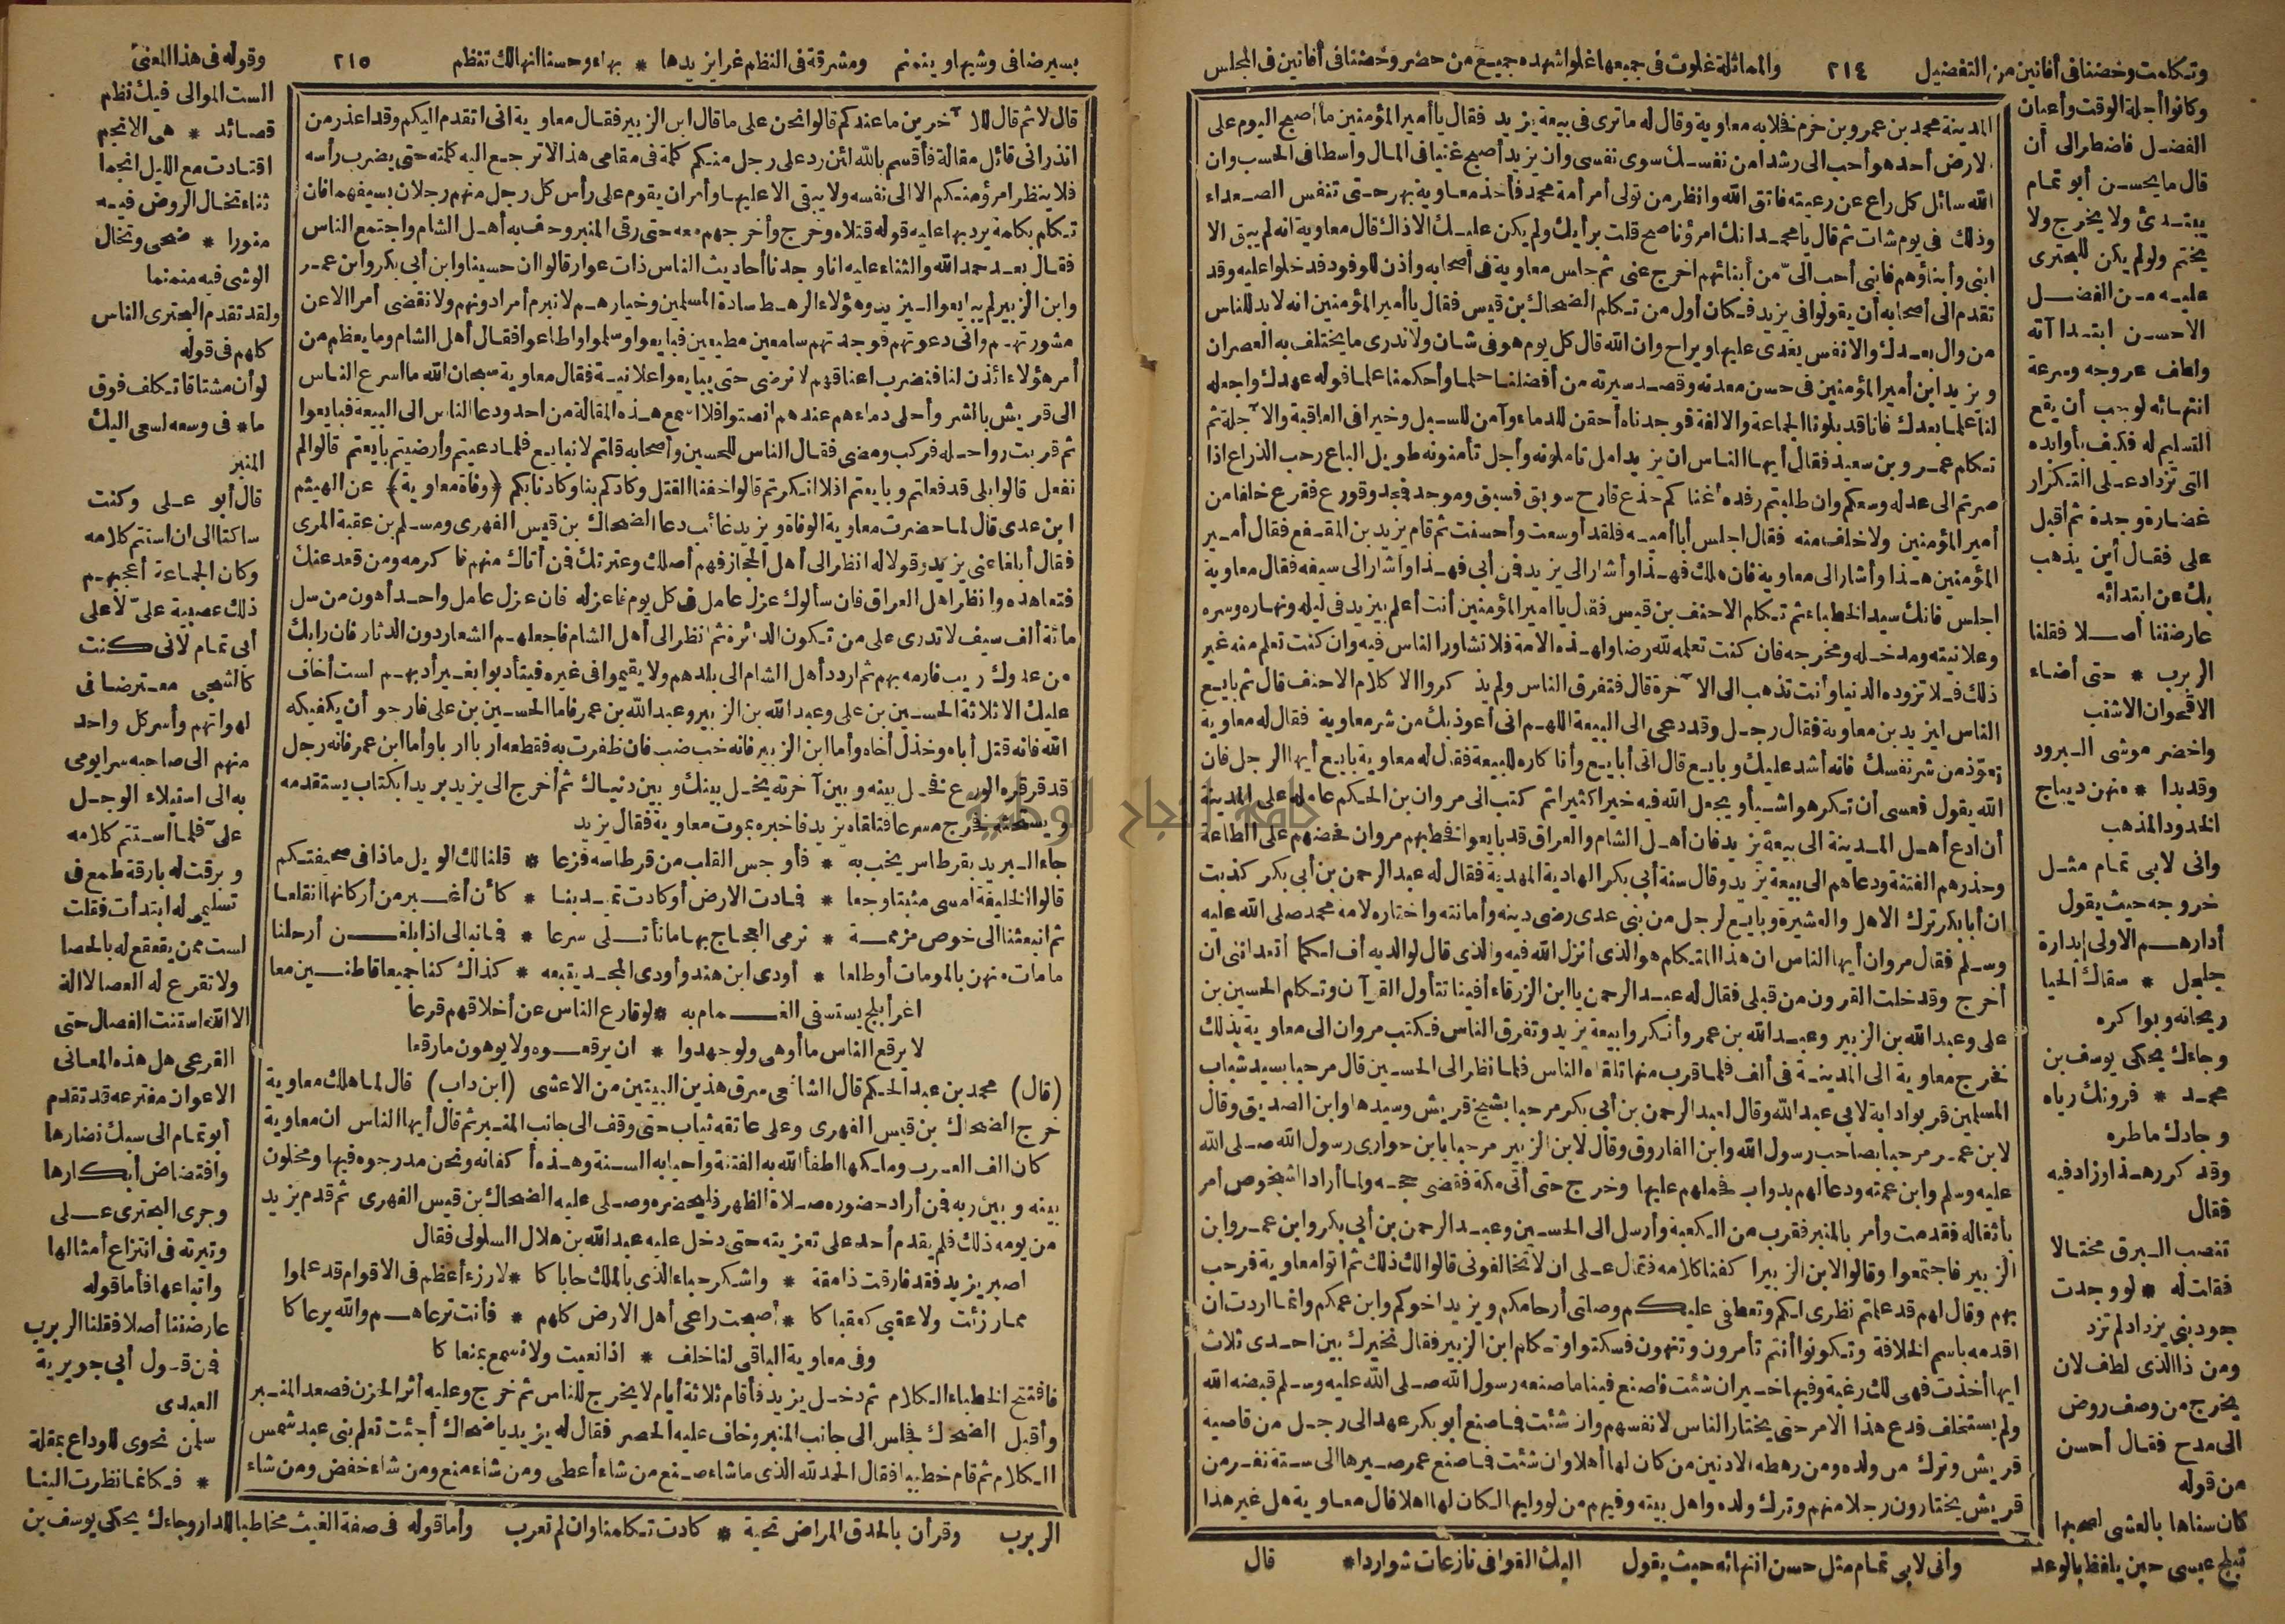 وتكلمت وخضنا في أفانين من التفضيل ٢١٤ والمماثلة غلوت في جميعها غلوا شهده جميع من حضر وخضنا في أفانين في المجلس
المدينة محمد بن عمرو بن حزم فخلا به معاوية وقال له ما ترى في بيعة يزيد فقال يا أمير المؤمنين ما أصبح اليوم على
الارض أحد هو أحب الى رشدا من نفسك سوى نفسى وان يزيد أصبح غنيا في المال واسطا في الحسب وان
الله سائل كل راع عن رعيته فاتق الله وانظر من تولى أمر أمة محمد فأخذ معاوية بهر حتى تنفس الصعداء
وذلك في يوم شات ثم قال يا محمد انك امرؤ ناصح قلت برأيك ولم يكن عليك الا ذاك قال معاوية انه لم يبق الا
ابنى وأبناؤهم فابنى أحب الىّ من أبنائهم اخرج عنى ثم جلس معاوية في أصحابه وأذن للوفود فدخلوا عليه وقد
تقدم الى أصحابه أن يقولوا في يزيد فكان أول من تكلم الضحاك بن قيس فقال يا أمير المؤمنين انه لا بد للناس
من وال بعدك والانفس يغدى عليها ويراح وان الله قال كل يوم هو في شان ولا ندرى ما يختلف به العصران
ويزيد ابن أمير المؤمنين في حسن معدنه وقصد سيرته من أفضلنا حلما وأحكمنا علما فوله عهدك واجعله
لنا علما بعدك فانا قد بلونا الجماعة والالفة فوجدناه أحقن للدماء وآمن للسبل وخيرا في العاقبة والآجلة ثم
تكلم عمرو بن سعيد فقال أيها الناس ان يزيد امل تاملونه وأجل تأمنونه طويل الباع رحب الذراع اذا
صرتم الى عدله وسعكم وان طلبتم رفده أغناكم جذع قارح سوبق فسبق وموجد فمجد وقورع فقرع خلفا من
أمير المؤمنين ولا خلف منه فقال اجلس أبا أمية فلقد أوسعت وأحسنت ثم قام يزيد بن المقفع فقال أمير
المؤمنين هذا وأشار الى معاوية فان هلك فهذا وأشار الى يزيد فمن أبى فهذا واشار الى سيفه فقال معاوية
اجلس فانك سيد الخطباء ثم تكلم الاحنف بن قيس فقال يا امير المؤمنين أنت أعلم بيزيد في ليله ونهاره وسره
وعلانيته ومدخله ومخرجه فان كنت تعلمه لله رضا ولهذه الامة فلا تشاور الناس فيه وان كنت تعلم منه غير
ذلك فلا تزوده الدنيا وأنت تذهب الى الآخرة قال فتفرق الناس ولم يذكروا الا كلام الاحنف قال ثم بايع
الناس ليزيد بن معاوية فقال رجل وقد دعى الى البيعة اللهم انى أعوذ بك من شر معاوية فقال له معاوية
تعوّذ من شر نفسك فانه أشد عليك وبايع قال انى أبايع وأنا كاره للبيعة فقال له معاوية بايع أيها الرجل فان
الله يقول فعسى أن تكرهوا شيأ ويجعل الله فيه خيرا كثيرا ثم كتب الى مروان بن الحكم عامله على المدينة
أن ادع أهل المدينة الى بيعة يزيد فان أهل الشام والعراق قد بايعوا فخطبهم مروان فحضهم على الطاعة
وحذرهم الفتنة ودعاهم الى بيعة يزيد وقال سنة أبى بكر الهادية المهدية فقال له عبد الرحمن بن أبى بكر كذبت
ان أبا بكر ترك الاهل والعشيرة وبايع لرجل من بنى عدى رضى دينه وأمانته واختاره لامة محمد صلى الله عليه
وسلم فقال مروان أيها الناس ان هذا المتكلم هو الذى أنزل الله فيه والذى قال لوالديه أف لكما أتعدانى ان
أخرج وقد خلت القرون من قبلى فقال له عبد الرحمن يا ابن الزرقاء أفينا تتأول القرآن وتكلم الحسين بن
على وعبد الله بن الزبير وعبد الله بن عمر وأنكروا بيعة يزيد وتفرق الناس فكتب مروان الى معاوية بذلك
فخرج معاوية الى المدينة في ألف فلما قرب منها تلقاه الناس فلما نظر الى الحسين قال مرحبا بسيد شباب
المسلمين قربوا دابة لابى عبد الله وقال لعبد الرحمن بن أبى بكر مرحبا بشيخ قريش وسيدها وابن الصديق وقال
لابن عمر مرحبا بصاحب رسول الله وابن الفاروق وقال لابن الزبير مرحبا بابن حوارى رسول الله صلى الله
عليه وسلم وابن عمته ودعا لهم بدواب فحملهم عليها وخرج حتى أتى مكة فقضى حجه ولما أراد الشخوص أمر
بأثقاله فقدمت وأمر بالمنبر فقرب من الكعبة وأرسل الى الحسين وعبد الرحمن بن أبى بكر وابن عمر وابن
الزبير فاجتمعوا وقالوا لابن الزبير اكفنا كلامه فقال على ان لا تخالفونى قالوا لك ذلك ثم اتوا معاوية فرحب
بهم وقال لهم قد علمتم نظرى لكم وتعطفى عليكم وصلتى أرحامكم ويزيد اخوكم وابن عمكم وانما اردت ان
اقدمه باسم الخلافة وتكونوا أنتم تأمرون وتنهون فسكتوا وتكلم ابن الزبير فقال نخيرك بين احدى ثلاث
ايها أخذت فهى لك رغبة وفيها خيران شئت فاصنع فينا ما صنعه رسول الله صلى الله عليه وسلم قبضه الله
ولم يستخلف فدع هذا الامر حتى يختار الناس لانفسهم وان شئت فما صنع أبو بكر عهد الى رجل من قاصية
قريش وترك من ولده ومن رهطه الادنين من كان لها أهلا وان شئت فما صنع عمر صيرها الى ستة نفر من
قريش يختارون رجلا منهم وترك ولده واهل بيته وفيهم من لو وليها لكان لها اهلا قال معاوية هل غير هذا
وكانوا أجلة الوقت وأعيان
الفضل فاضطر الى أن
قال ما يحسن أبو تمام
يبتدئ ولا يخرج ولا
يختم ولو لم يكن للبحترى
عليه من الفضل
الا حسن ابتدا آته
ولطف خروجه وسرعة
انتهائه لوجب أن يقع
التسليم له فكيف بأوابده
التى تزداد على التكرار
غضارة وجدة ثم أقبل
على فقال أين يذهب
بك عن ابتدائه
عارضننا أصلا فقلنا
الربرب * حتى أضاء
الاقحوان الاشنب
واخضر موشى البرود
وقد بدا * منهن ديباج
الخدود المذهب
وانى لابى تمام مثل
خروجه حيث يقول
أدارهم الاولى بدارة
جلجل * سقاك الحيا
ريحانه وبواكره
وجاءك يحكى يوسف بن
محمد * فروتك رياه
وجادك ماطره
وقد كرر هذا وزاد فيه
فقال
تنصب البرق مختالا
فقلت له * لو وجدت
جود بنى يزداد لم تزد
ومن ذا الذى لطف لان
يخرج من وصف روض
الى مدح فقال أحسن
من قوله
كان سناها بالعشى لصبحها
تبلج عيسى حين يلفظ بالوعد وأنى لابى تمام مثل حسن انتهائه حيث يقول اليك القوافى نازعات شواردا * قال
يسير ضافى وشيها وينمنم ومشرقة في النظم غرا يزيدها * بهاء وحسنا انها لك تنظم ٢١٥ وقوله في هذا المعنى
قال لا ثم قال للآخرين ما عندكم قالوا نحن على ما قال ابن الزبير فقال معاوية انى اتقدم اليكم وقد اعذر من
انذر انى قائل مقالة فأقسم بالله لئن رد على رجل منكم كلمة في مقامى هذا لا ترجع اليه كلمته حتى يضرب رأسه
فلا ينظر امرؤ منكم الا الى نفسه ولا يبقى الا عليها وأمر ان يقوم على رأس كل رجل منهم رجلان بسيفهما فان
تكلم بكلمة يرد بها عليه قوله قتلاه وخرج وأخرجهم معه حتى رقى المنبر وحف به أهل الشام واجتمع الناس
فقال بعد حمد الله والثناء عليه انا وجدنا أحاديث الناس ذات عوار قالوا ان حسينا وابن أبى بكر وابن عمر
وابن الزبير لم يبايعوا ليزيد وهؤلاء الرهط سادة المسلمين وخيارهم لا نبرم أمرا دونهم ولا نقضى أمرا الا عن
مشورتهم وانى دعوتهم فوجدتهم سامعين مطيعين فبايعوا وسلموا واطاعوا فقال أهل الشام وما يعظم من
أمر هؤلاء ائذن لنا فنضرب اعناقهم لا نرضى حتى يبايعوا علانية فقال معاوية سبحان الله ما اسرع الناس
الى قريش بالشر وأحلى دماءهم عندهم انصتوا فلا اسمع هذه المقالة من احد ودعا الناس الى البيعة فبايعوا
ثم قربت رواحله فركب ومضى فقال الناس للحسين وأصحابه قلتم لا نبايع فلما دعيتم وأرضيتم بايعتم قالوا لم
نفعل قالوا بلى قد فعلتم وبايعتم افلا انكرتم قالوا خفنا القتل وكادكم بنا وكادنا بكم (وفاة معاوية) عن الهيثم
ابن عدى قال لما حضرت معاوية الوفاة ويزيد غائب دعا الضحاك بن قيس الفهرى ومسلم بن عقبة المرى
فقال أبلغا عنى يزيد وقولا له انظر الى أهل الحجاز فهم أصلك وعترتك فمن أتاك منهم فاكرمه ومن قعد عنك
فتعاهده وانظر اهل العراق فان سألوك عزل عامل في كل يوم فاعزله فان عزل عامل واحد أهون من سل
مائة ألف سيف لا تدرى على من تكون الدائرة ثم انظر الى أهل الشام فاجعلهم الشعار دون الدثار فان رابك
من عدوك ريب فارمه بهم ثم اردد أهل الشام الى بلدهم ولا يقيموا في غيره فيتأدبوا بغير أدبهم لست أخاف
عليك الا ثلاثة الحسين بن على وعبد الله بن الزبير وعبد الله بن عمر فاما الحسين بن على فارجو أن يكفيكه
الله فانه قتل أباه وخذل أخاه وأما ابن الزبير فانه خب ضب فان ظفرت به فقطعه اربا اربا وأما ابن عمر فانه رجل
قد قرقره الورع فخل بينه وبين آخرته يخل بينك وبين دنياك ثم أخرج الى يزيد بريدا بكتاب يستقدمه
ويستحثه فخرج مسرعا فتلقاه يزيد فاخبره بموت معاوية فقال يزيد
جاء البريد بقرطاس يخب به * فأوجس القلب من قرطاسه فزعا * قلنا لك الويل ماذا في صحيفتكم
قالوا الخليفة امسى مثبتا وجعا * فمادت الارض أو كادت تميد بنا * كأن أغبر من أركانها انقلعا
ثم انبعثنا الى خوص مزممة * نرمى العجاج بها ما نأتلى سرعا * فما نبالى اذا بلغن أرحلنا
ما مات منهن بالمومات أو طلعا * أودى ابن هند وأودى المجد يتبعه * كذاك كنا جميعا قاطنين معا
اغر أبلج يستسقى الغمام به * لو قارع الناس عن أخلاقهم قرعا
لا يرقع الناس ما أوهى ولو جهدوا * ان يرقعوه ولا يوهون ما رقعا
(قال) محمد بن عبد الحكم قال الشافعى سرق هذين البيتين من الاعشى (ابن داب) قال لما هلك معاوية
خرج الضحاك بن قيس الفهرى وعلى عاتقه ثياب حتى وقف الى جانب المنبر ثم قال أيها الناس ان معاوية
كان الف العرب وملكها اطفأ الله به الفتنة واحيا به السنة وهذه أكفانه ونحن مدرجوه فيها ومخلون
بينه وبين ربه فمن أراد حضوره صلاة الظهر فليحضره وصلى عليه الضحاك بن قيس الفهرى ثم قدم يزيد
من يومه ذلك فلم يقدم أحد على تعزيته حتى دخل عليه عبد الله بن هلال السلولى فقال
اصبر يزيد فقد فارقت ذا مقة * واشكر حباء الذى بالملك حاباكا * لا رزء أعظم في الاقوام قد علموا
مما رزئت ولا عقبى كعقباكا * أصبحت راعى أهل الارض كلهم * فأنت ترعاهم والله يرعاكا
وفى معاوية الباقى لنا خلف * اذا نعيت ولا نسمع بمنعاكا
فافتتح الخطباء الكلام ثم دخل يزيد فأقام ثلاثة أيام لا يخرج للناس ثم خرج وعليه أثر الحزن فصعد المنبر
وأقبل الضحاك فجلس الى جانب المنبر وخاف عليه الحصر فقال له يزيد يا ضحاك أجئت تعلم بنى عبد شمس
الكلام ثم قام خطيبا فقال الحمد لله الذى ما شاء صنع من شاء أعطى ومن شاء منع ومن شاء خفض ومن شاء
الست الموالى فيك نظم
قصائد * هى الانجم
اقتادت مع الليل انجما
ثناء تخال الروض فيه
منورا * ضحى وتخال
الوشى فيه منمنما
ولقد تقدم البحترى الناس
كلهم في قوله
لو أن مشتاقا تكلف فوق
ما * في وسعه لسعى اليك
المنبر
قال أبو على وكنت
ساكتا الى ان استتم كلامه
وكان الجماعة أعجبهم
ذلك عصبية علىّ لا على
أبى تمام لانى كنت
كالشجى معترضا في
لهواتهم وأسر كل واحد
منهم الى صاحبه سرا يومى
به الى استيلاء الوجل
علىّ فلما استتم كلامه
وبرقت له بارقة طمع في
تسليمى له ابتدأت فقلت
لست ممن يقعقع له بالحصا
ولا تقرع له العصا لا اله
الا الله استنت الفصال حتى
القرعى هل هذه المعانى
الا عوان مفترعة قد تقدم
أبو تمام الى سبك نضارها
وافتضاض أبكارها
وجرى البحترى على
وتيرته في انتزاع أمثالها
واتباعها فأما قوله
عارضننا أصلا فقلنا الربرب
فمن قول أبى جويرية
العبدى
سلمن نحوى للوداع بمقلة
* فكانما نظرت الينا
الربرب وقرأن بالحدق المراض تحية * كادت تكلمنا وان لم تعرب وأما قوله في صفة الغيث مخاطبا للدار وجاءك يحكى يوسف بن
جامعة النجاح الوطنية